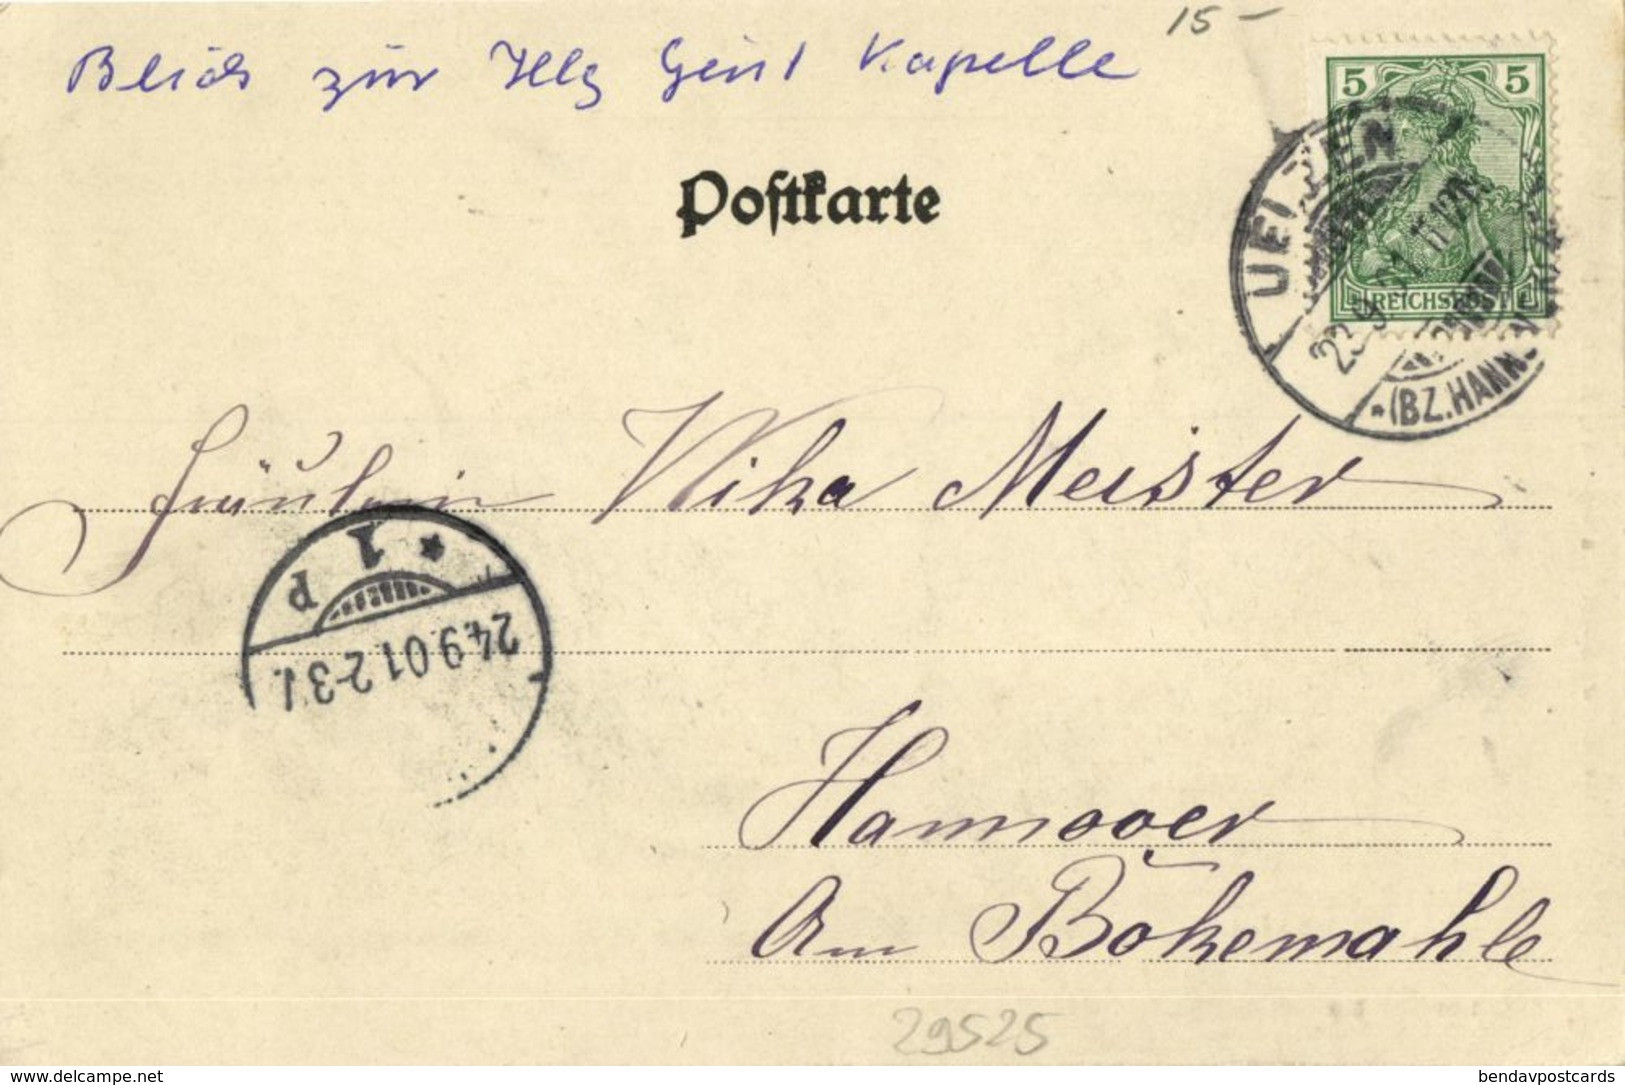 15 –
Blick zur Hlg Geist Kapelle
5 5
REICHSPOST
UELZEN
23 9 01 11-12
* (BZ. HANN
Postkarte
Fräulein Mika Meister
* 1 P
24.9.01. 2-3
Hannover
Am Bökemahle
29525
www.delcampe.net
bendavpostcards